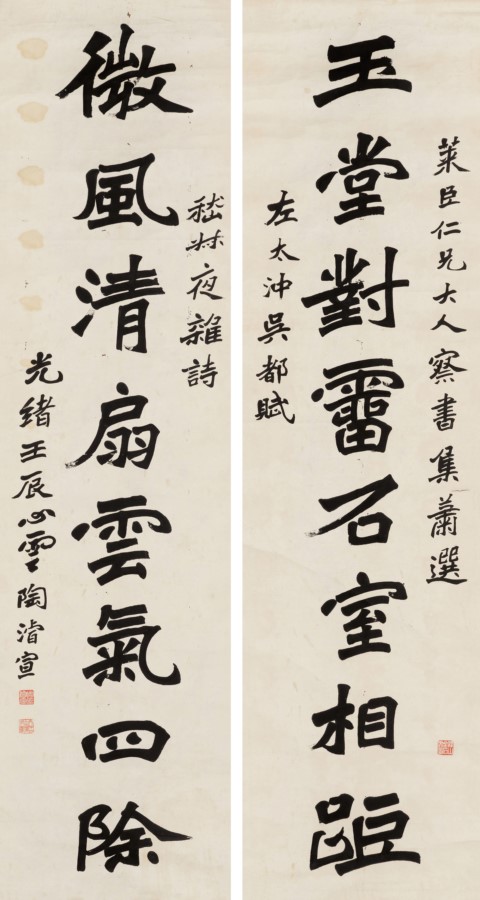 萊臣仁兄大人察書集蕭選
玉堂對霤石室相距
左太沖吳都賦
嵇叔夜雜詩
微風清扇雲氣四除
光緒壬辰心雲陶濬宣